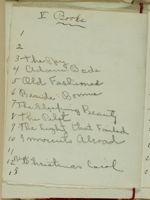 V Books
1
2
3 The Spy
4 Adam Bede
5 Old Fashioned
6 Beside Bonnie
7 The Sleeping Beauty
8 The Pilot
9 The Light that Failed
10 Innocents Abroad
11
12 A Christmas Carol
13